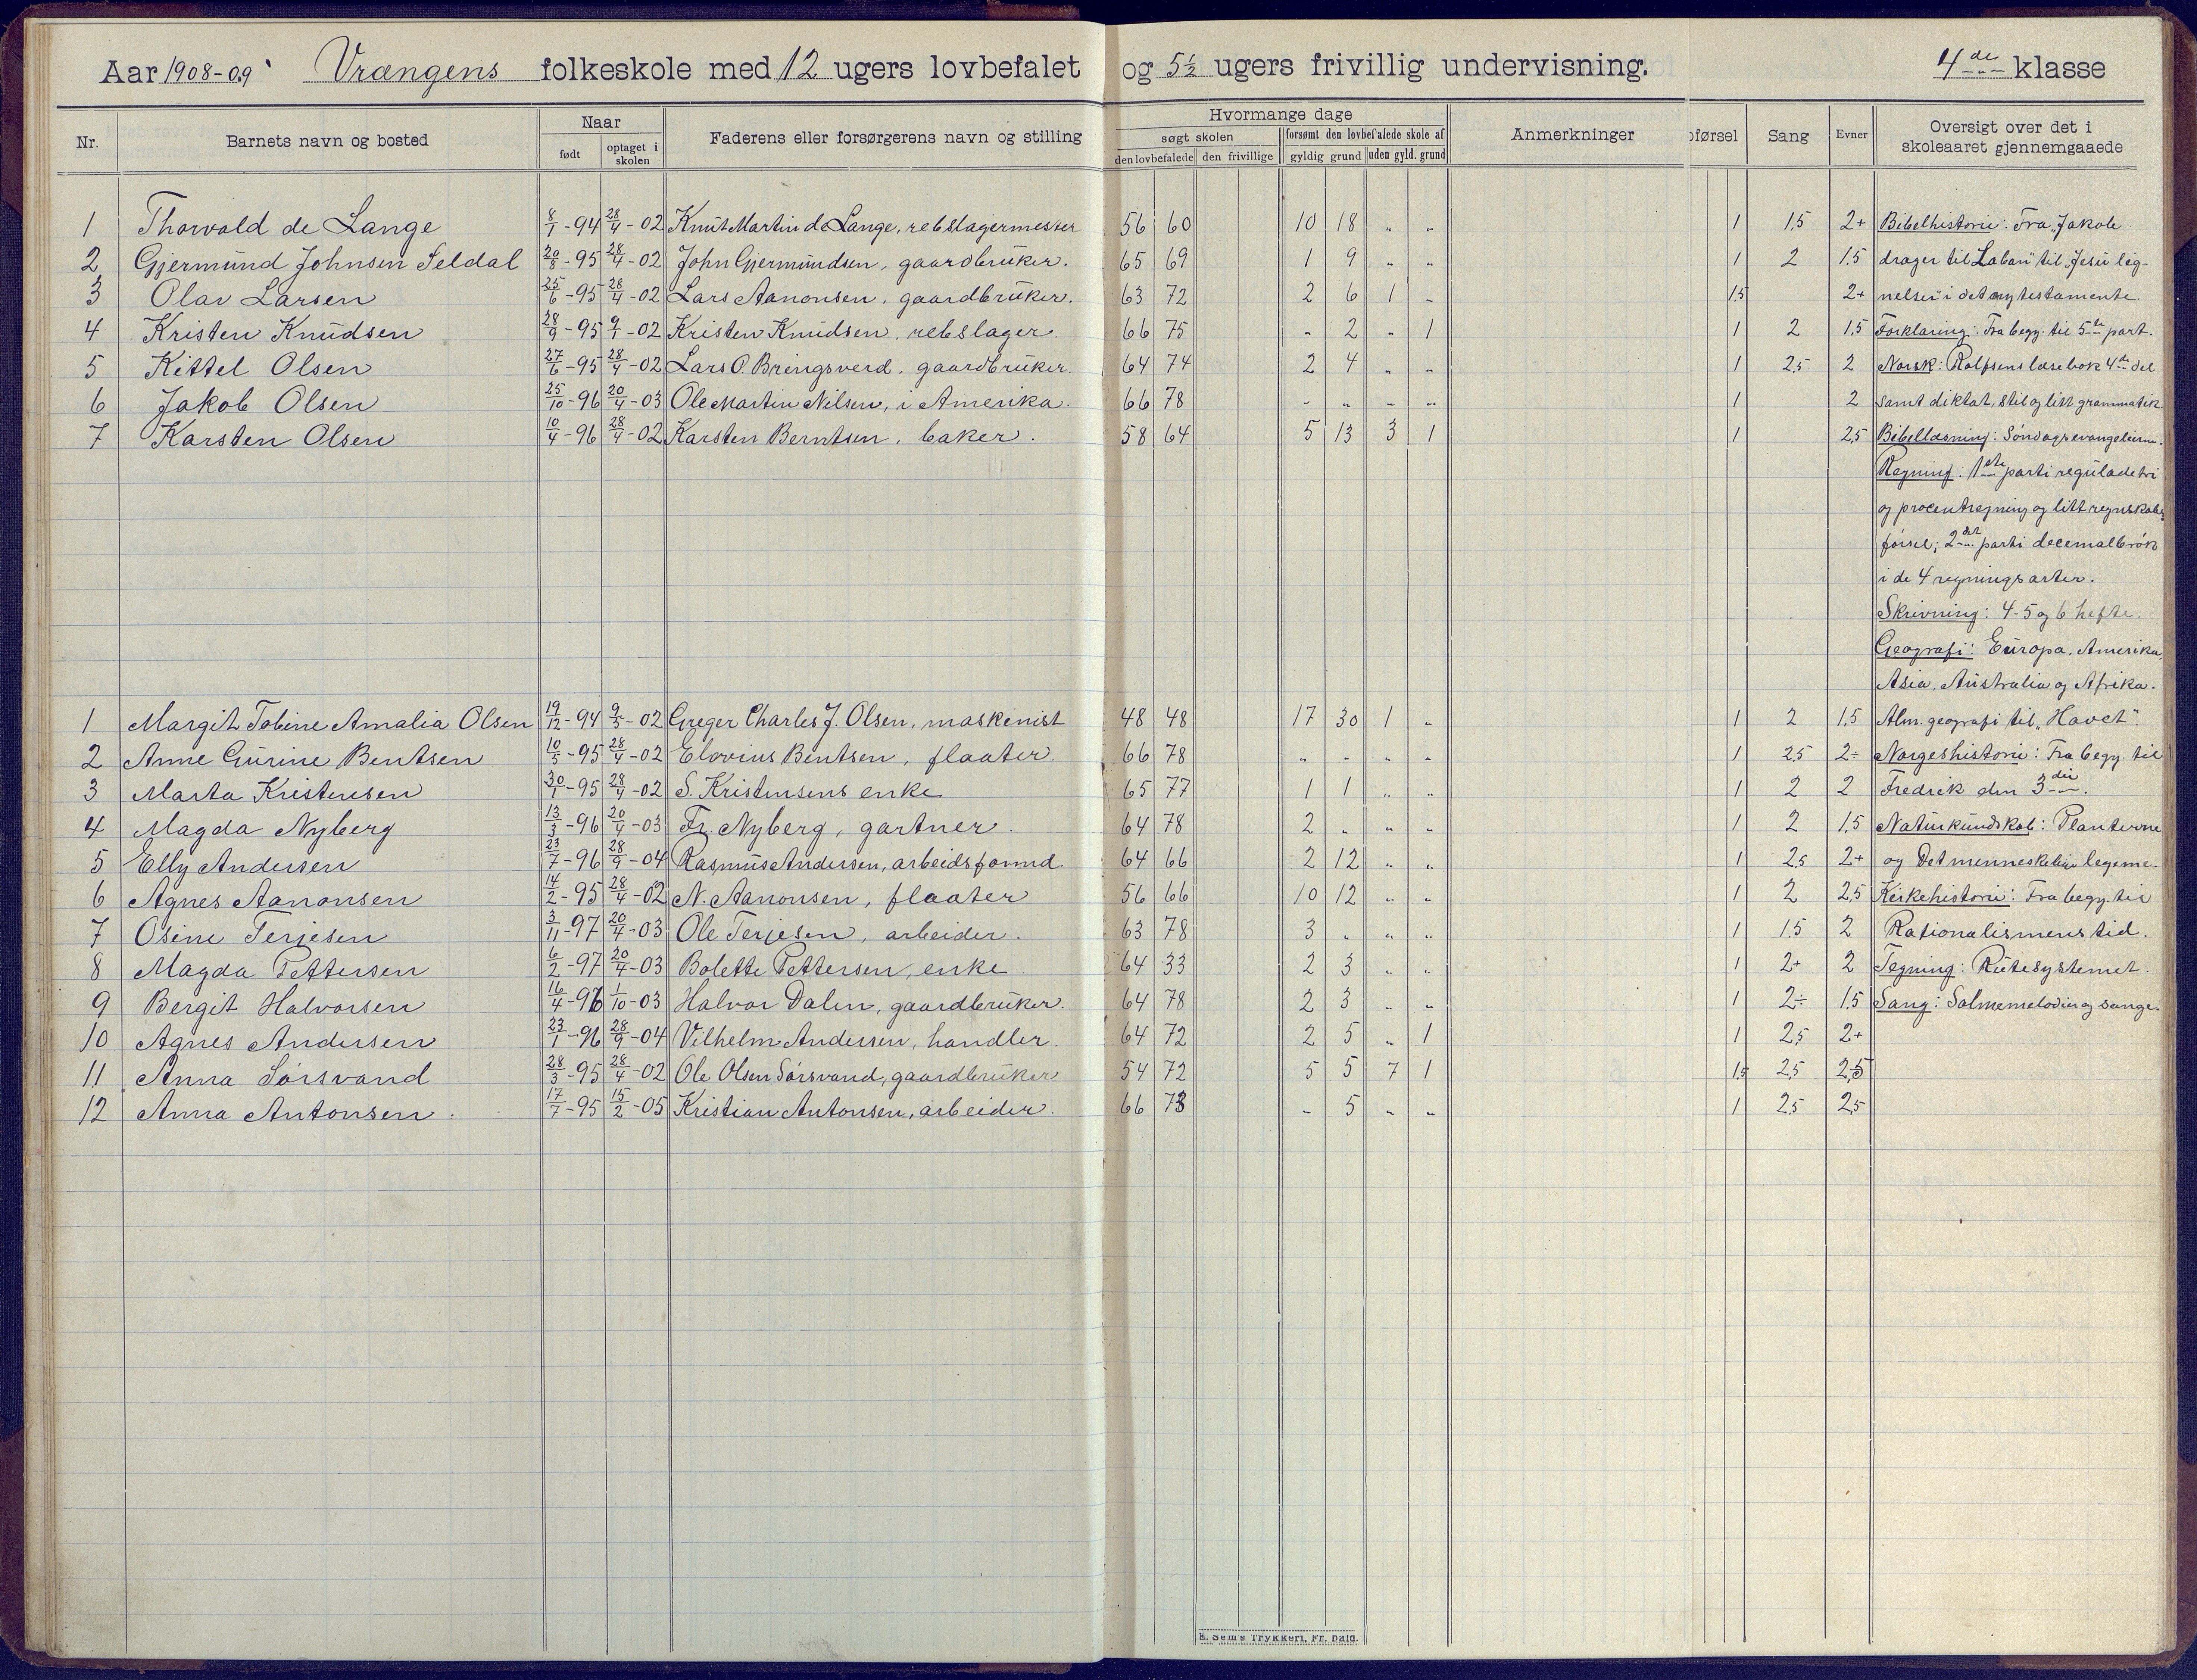 Aar 1908-09 Vrængens folkeskole med 12 ugers lovbefalet og 5½ ugers frivillig undervisning. 4de klasse
Nr. Barnets navn og bosted Naar født optaget i skolen Faderens eller forsørgerens navn og stilling Hvormange dage søgt skolen den lovbefalede den frivillige forsømt den lovbefalede skole af gyldig grund uden gyld. grund Anmerkninger førsel Sang Evner Oversigt over det i skoleaaret gjennemgaaede
1 Thorvald de Lange 8/1-94 28/4-02 Knut Martin de Lange, rebslagermester 56 60 10 18 " " 1 1,5 2+ Bibelhistorie: Fra "Jakob
2 Gjermund Johnsen Seldal 20/8-95 28/4-02 John Gjermundsen, gaardbruker. 65 69 1 9 " " 1 2 1.5 drager til Laban" til "Jesu lig-
3 Olav Larsen 25/6-95 28/4-02 Lars Aanonsen, gaardbruker. 63 72 2 6 1 " 1,5 2+ nelser" i det ny testamente.
4 Kristen Knudsen 28/9-95 9/1-02 Kristen Knudsen, rebslager. 66 75 " 2 " 1 1 2 1,5 Forklaring: Fra begy. til 5te part.
5 Kittel Olsen 27/6-95 28/4-02 Lars O. Bringsverd, gaardbruker. 64 74 2 4 " " 1 2,5 2 Norsk: Rolfsens læsebok 4de del
6 Jakob Olsen 25/10-96 20/4-03 Ole Martin Nilsen, i Amerika. 66 78 " " " " 1 2 samt diktat, stil og litt grammatik.
7 Karsten Olsen 10/4-96 28/4-02 Karsten Berntsen, baker. 58 64 5 13 3 1 1 2,5 Bibellæsning: Søndagsevangelierne.
Regning: 1ste parti reguladetri
og procentregning og litt regnskabs
førsel; 2det parti decemalbrøk
i de 4 regningsarter.
Skrivning: 4-5 og 6 hefte.
Geografi: Europa, Amerika,
Asia, Australia og Afrika.
1 Margit Tobine Amalia Olsen 19/12-94 9/5-02 Greger Charles J. Olsen, maskinist 48 48 17 30 1 " 1 2 1,5 Alm. geografi til "Havet".
2 Anne Gurine Bentsen 10/5-95 28/4-02 Elovius Bentsen, fløater. 66 78 " " " " 1 2,5 2÷ Norgeshistorie: Fra begy. til
3 Marta Kristensen 30/1-95 28/4-02 S. Kristensens enke 65 77 1 1 " " 1 2 2 Fredrik den 3die.
4 Magda Nyberg 13/3-96 20/4-03 Fr. Nyberg, gartner. 64 78 2 " " " 1 2 1,5 Naturkundskab: Planterne
5 Elly Andersen 23/7-96 28/9-04 Rasmus Andersen, arbeidsformd. 64 66 2 12 " " 1 2,5 2+ og Det menneskelige legeme.
6 Agnes Aanonsen 14/2-95 28/4-02 N. Aanonsen, flaater 56 66 10 12 " " 1 2 2,5 Kirkehistorie: Fra begy. til
7 Osine Terjesen 3/11-97 20/4-03 Ole Terjesen, arbeider. 63 78 3 " " " 1 1.5 2 Rationalismens tid.
8 Magda Pettersen 6/2-97 20/4-03 Bolette Pettersen, enke 64 33 2 3 " " 1 2+ 2 Tegning: Rutesystemet.
9 Bergit Halvorsen 16/4-96 1/10-03 Halvor Dalen, gaardbruker. 64 78 2 3 " " 1 2÷ 1.5 Sang: Salmemelodier og sange.
10 Agnes Andersen 23/1-96 28/9-04 Vilhelm Andersen, handler. 64 72 2 5 " 1 1 2,5 2+
11 Anna Sørsvand 28/3-95 28/4-02 Ole Olsen Sørsvand, gaardbruker 54 72 5 5 7 1 1,5 2,5 2,5
12 Anna Antonsen. 17/7-95 15/2-05 Kristian Antonsen, arbeider. 66 73 " 5 " " 1 2,5 2,5
E. Sems Trykkeri, Fr. hald.